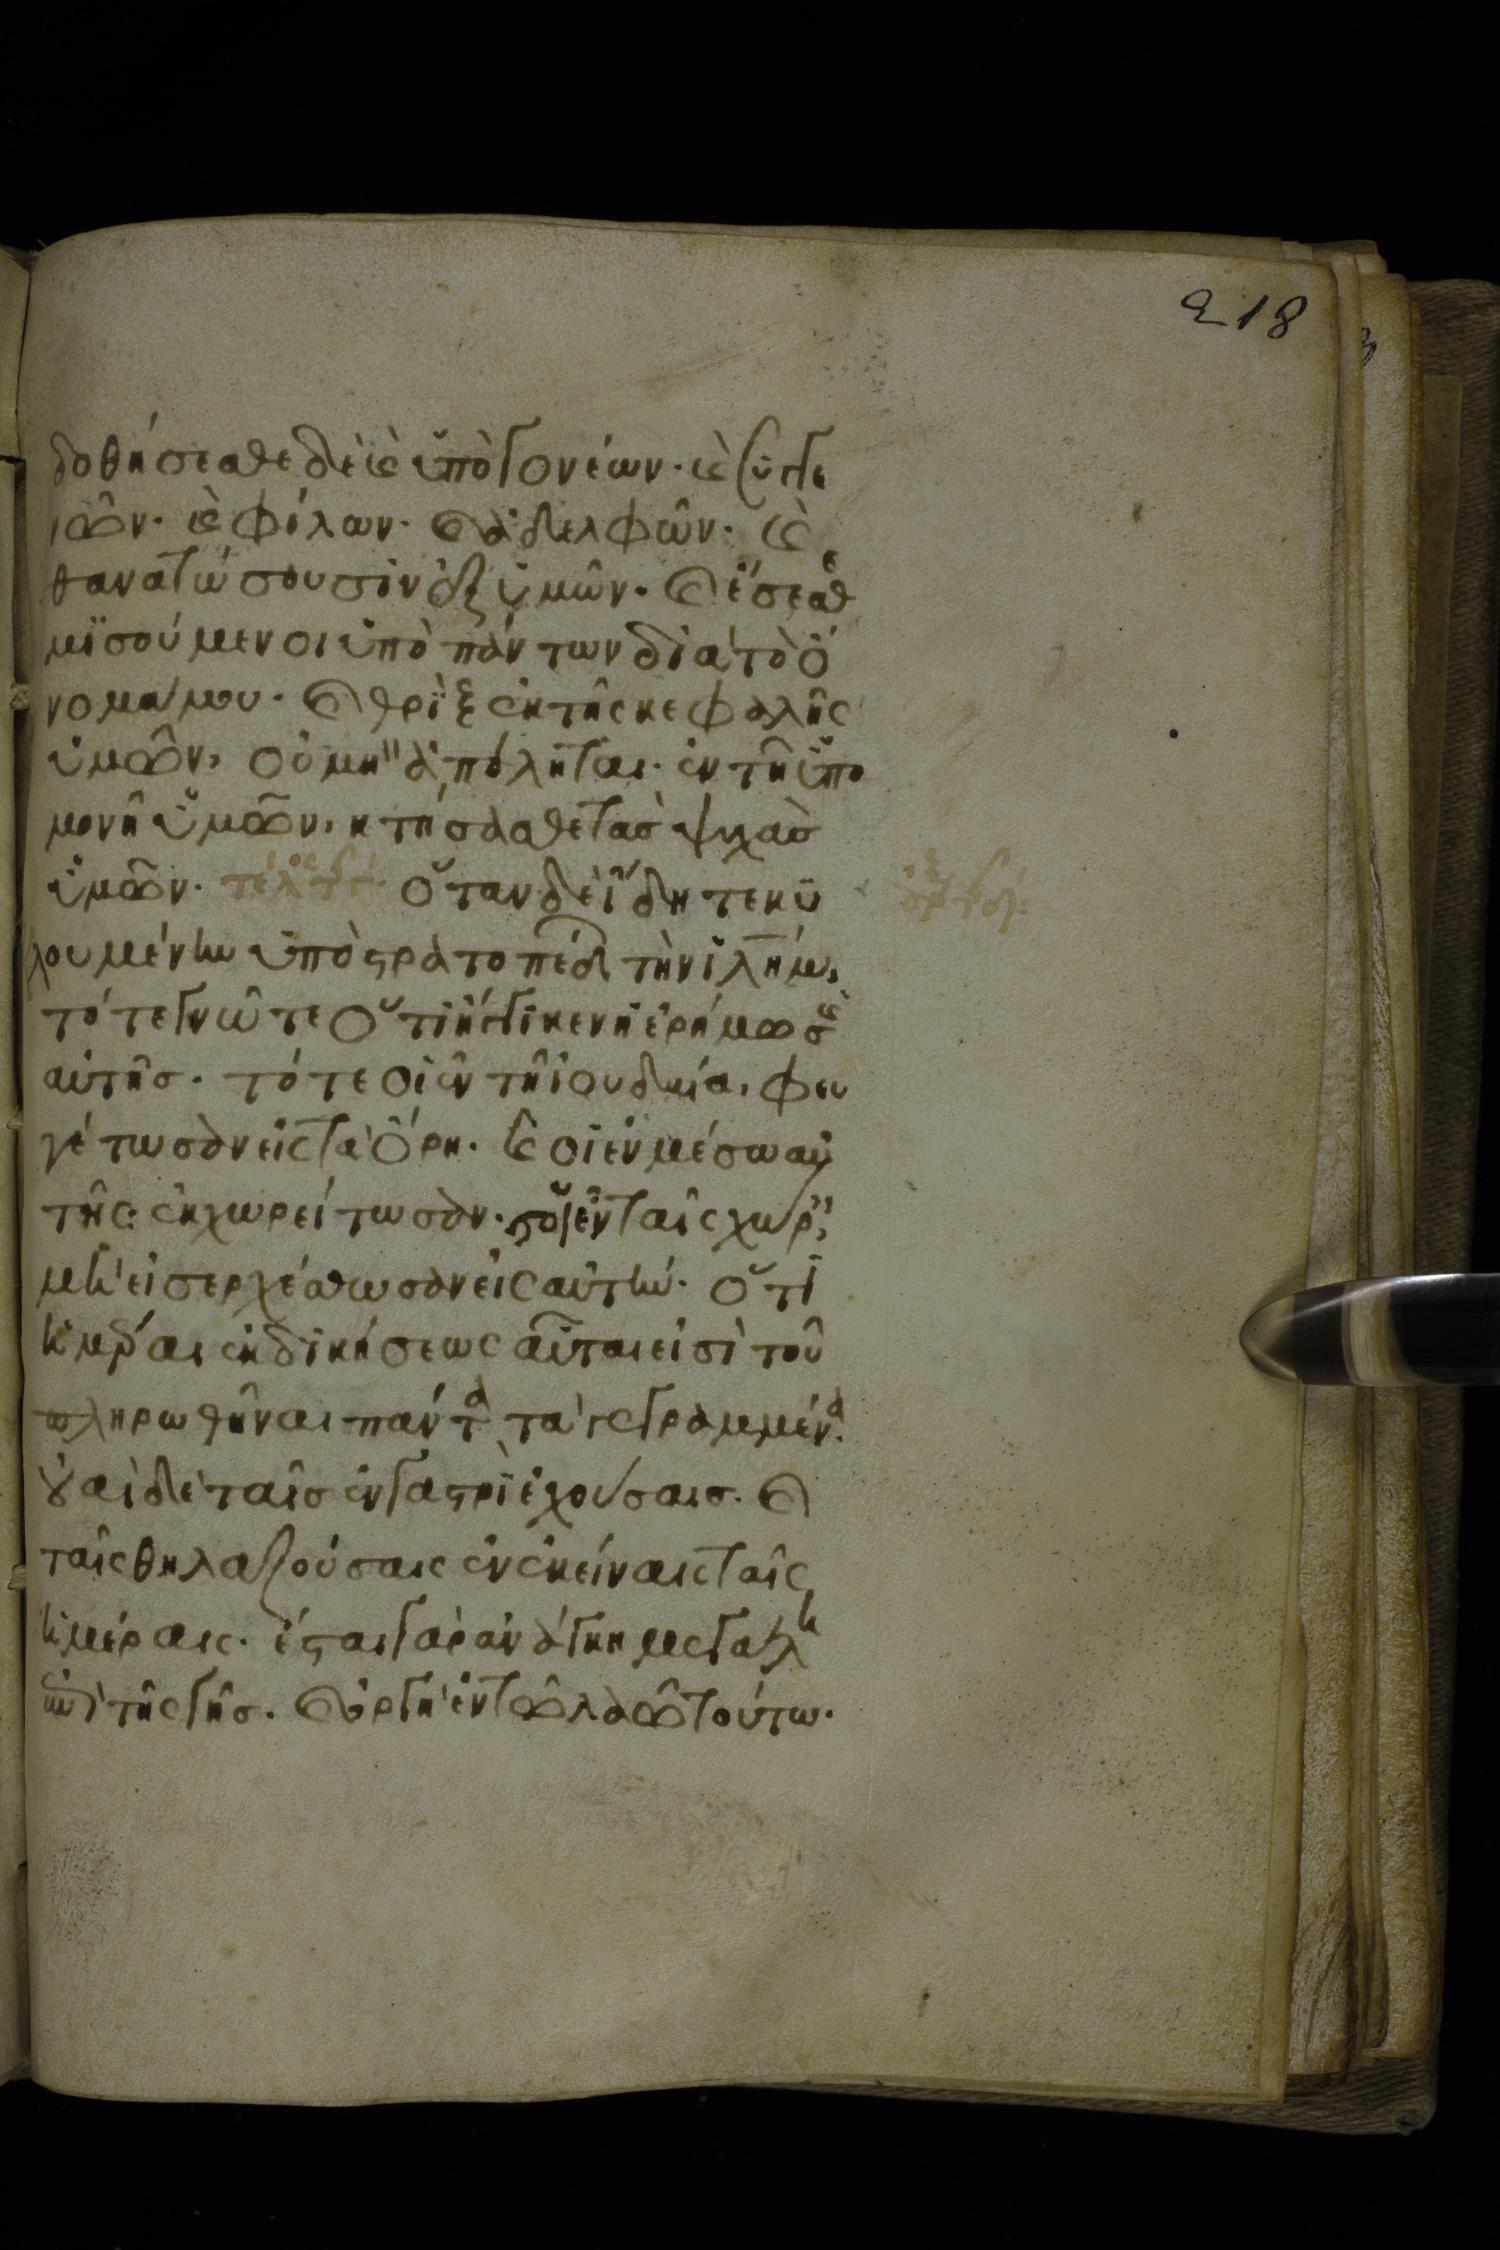 218
δοθήσεσθε δὲ καὶ ὑπὸ γονέων· καὶ συγγε
νῶν· καὶ φίλων· καὶ ἀδελφῶν· καὶ
θανατώσουσιν ἐξ ὑμῶν· καὶ ἔσεσθε
μϊσούμενοι ὑπὸ πάντων διὰ τὸ ὄ
νομα μου· καὶ θρὶξ ἐκ τῆς κεφαλῆς
ὑμῶν, οὐ μὴ ἀπόληται· ἐν τῆ ὑπο
μονῆ ὑμῶν, κτήσασθε τὰς ψυχὰς
ὑμῶν· τέλος τῆς ὅταν δὲ ἴδητε κυ
λουμένην ὑπὸ στρατοπέδων τὴν ἱλῆμ,
τότε γνῶτε ὅτι ἤγγικεν ἡ ἐρήμωσις
αὐτῆς· τότε οἱ ἐν τῆ ἰουδαία, φευ
γέτωσαν εἰς τὰ ὄρη· καὶ οἱ ἐν μέσω αὐ
τῆς ἐκχωρείτωσαν· καὶ οἱ ἐν ταῖς χώραις
μὴ εἰσερχέσθωσαν εἰς αὐτήν· ὅτι
ἡμέραι ἐκδικήσεως αὗταί εἰσι τοῦ
πληρωθῆναι πάντα τὰ γεγραμμένα·
οὐαὶ δὲ ταῖς ἐν γαστρὶ ἐχούσαις· καὶ
ταῖς θηλαζούσαις ἐν ἐκείναις ταῖς
ἡμέραις· ἔσται γὰρ ἀνάγκη μεγάλη
ἐπὶ τῆς γῆς· καὶ ὀργὴ ἐν τῶ λαῶ τούτω·